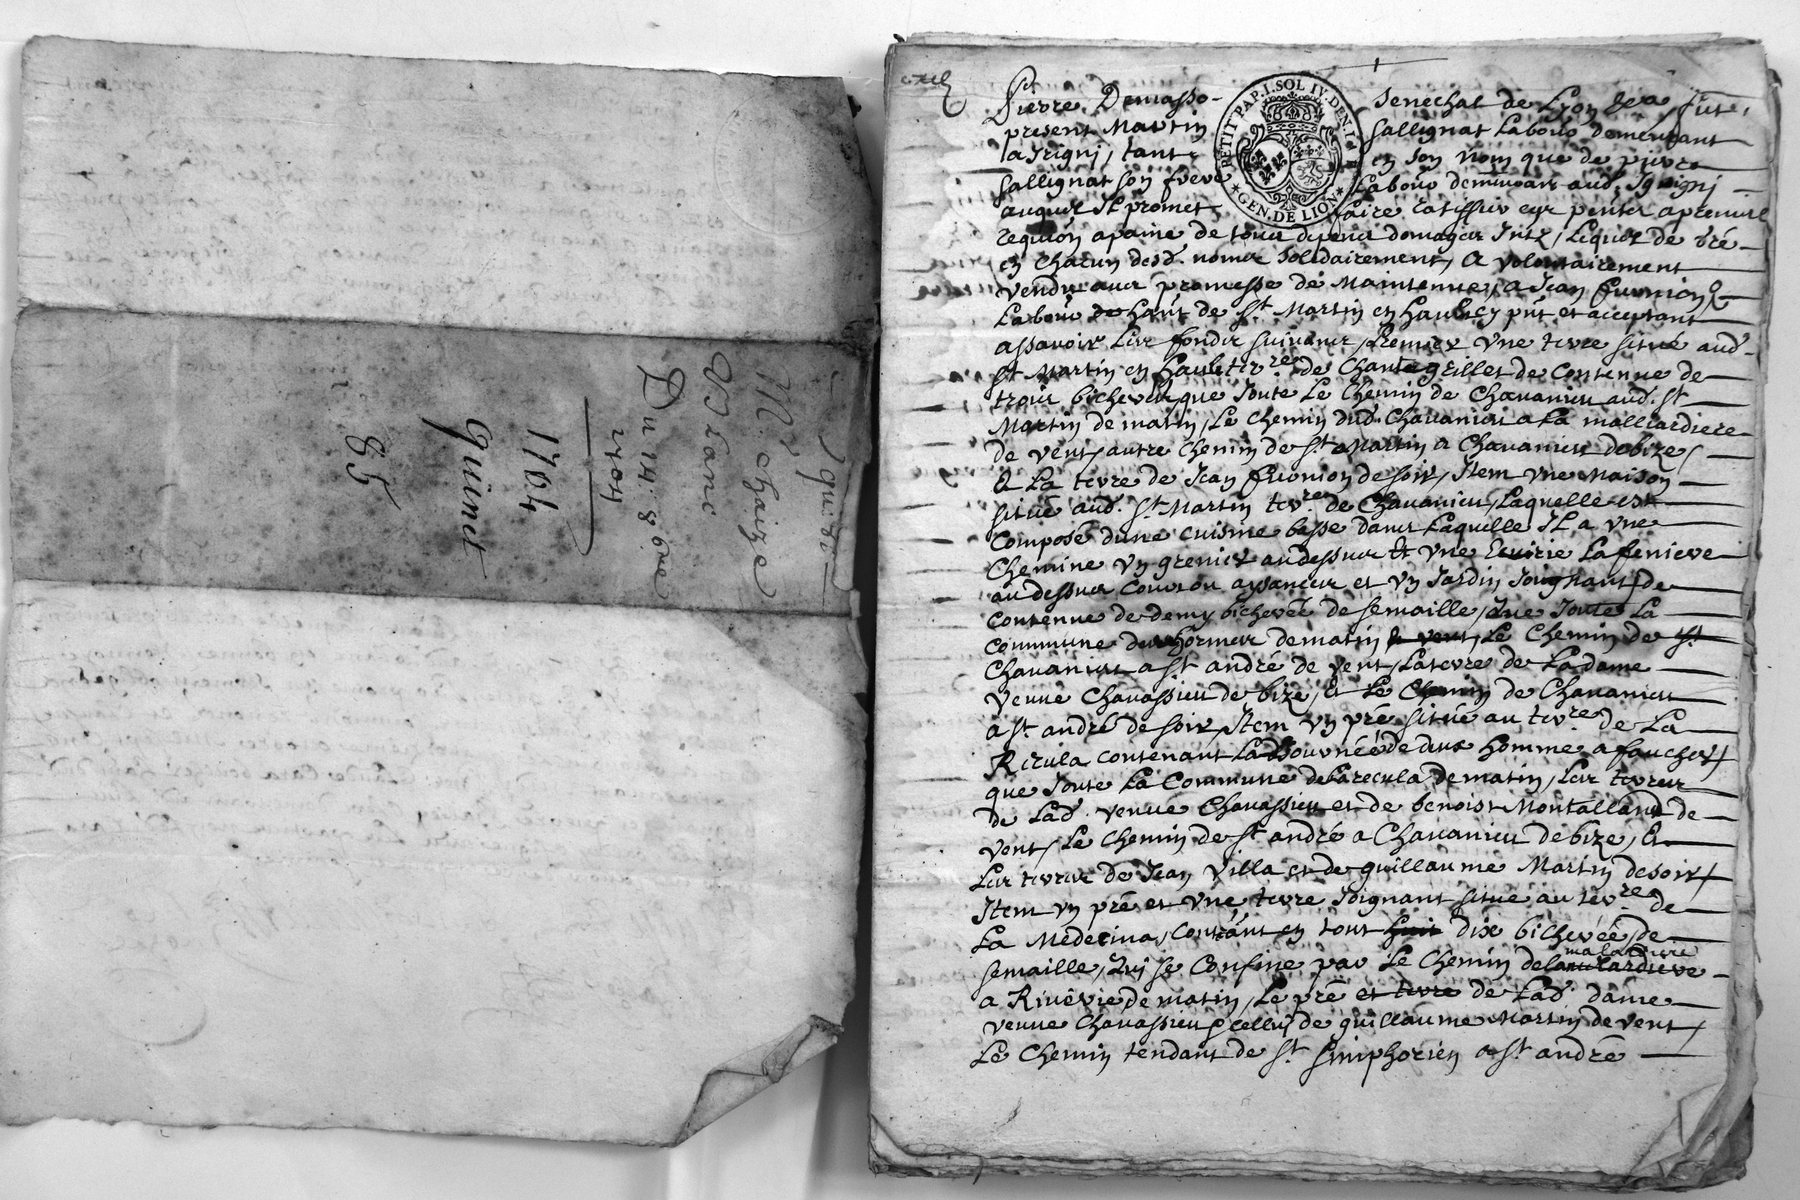 Mr. chaize
Blanc
Du 14. 8bre
1704
1704
quinet
85
PETIT PAP. I. SOL IV. DEN.
GEN. DE LION
Pierre Demasso senechal de Lyon
present Martin Sallignat Labour demeurant
a Irigni, tant en son nom que de pierre
Sallignat son frere Labour demeurant aud. Irigni
auquel Il promet faire ratiffier
requion a paine de tous depens domages Intz, Lequel de gré
en chacun desd. noms solidairement, a volontairement
Vendu avec promesse de Maintenue, a Jean
Labour de haut de St. Martin en hault cy pnt et acceptant
assavoir Les fonds suivants, premier Une terre située aud.
St. Martin en hault terre. de Chantegrillet de Contenue de
trois bicherées que Joute Le Chemin de Chavanieu aud. St.
Martin de matin, Le Chemin dud. Chavanieu a La mallardiere
de vent, autre chemin de St. Martin a Chavanieu de bize,
Et La terre de Jean de soir, Item Une Maison
située aud. St. Martin terre. de Chavanieu, Laquelle est
Composé dune cuisine basse dans Laquelle Il a Une
Chemine Un grenier au dessus Et Une Ecuirie La feniere
au dessus Cour ou aysances et Un Jardin Joignant, de
Contenue de demy bicherée de semaille, Que Joute La
Commune des hormes de matin et vent, Le Chemin de St.
Chavanieu a St. andré de vent, La terre de La dame
Veuve Chavassieu de bize, Et Le Chemin de Chavanieu
a St. andré de soir, Item Un pré située au terre. de La
Ricula contenant La Journée de deux homme a faucher,
que Joute La Commune de La recula de matin, Les terres
de Lad. veuve Chavassieu et de benoist Montalland de
Vent, Le Chemin de St. andré a Chavanieu de bize, Et
Les terres de Jean Villa et de guillaume Martin de soir,
Item Un pré et Une terre Joignant située au terre. de
La Medecina, Contenant en tout huit dix bicherée de
semaille, Qui se Confine par Le Chemin de la maladiere
a Riverie de matin, Le pré et terre de Lad. dame
veuve Chavassieu, celluy de guillaume Martin de vent,
Le Chemin tendant de St. Simphorien a St. andré